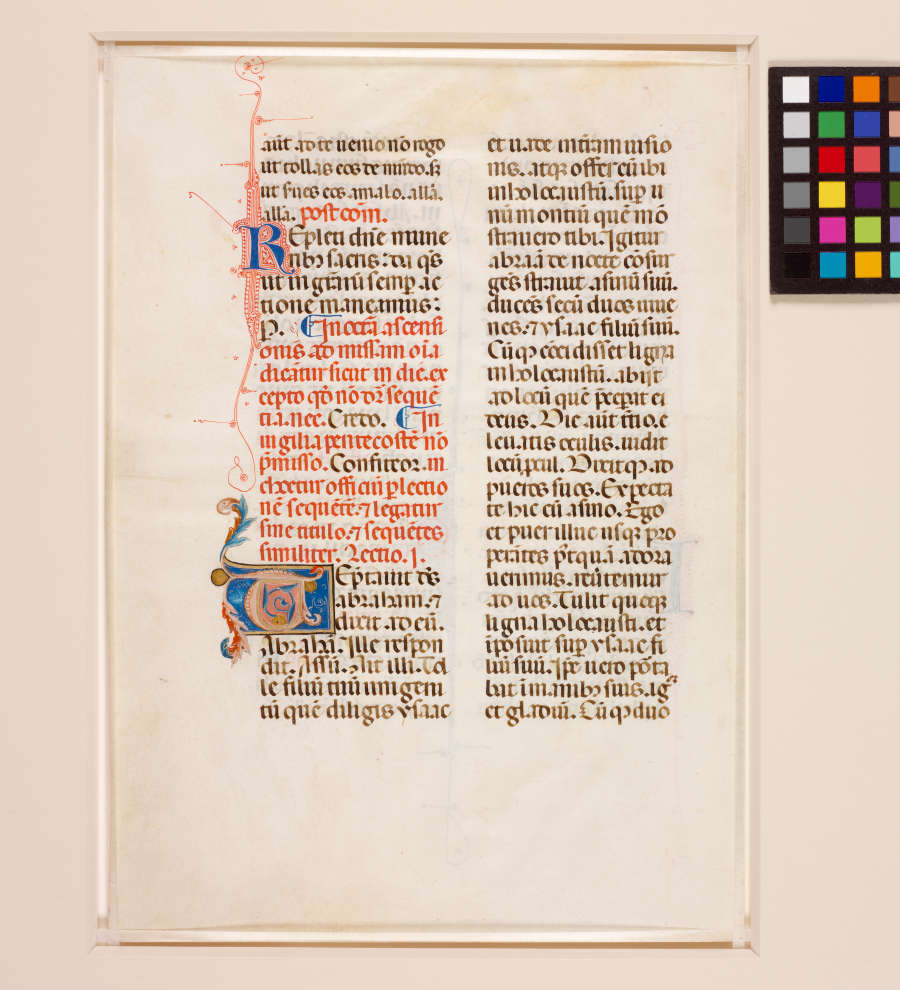 aūt ad te uenio nō rogo
ut tollas eos de mūdo. sʒ
ut śues eos amalo. allā.
allā. post cōm.
REpleti dn̄e mune
ribꝫ sacris: da q̄s
ut in gr̄arū semꝑ ac
tione maneamus:
In octā ascensi
onis ad missam oīa
dicātur sicut in die. ex
cepto qđ nō dr̄ sequē
tia. nec. Credo. In
uigilia pentecostē nō
p̄misso. Confiteor. in
choetur officiū ꝑ lectio
nē sequētē. ⁊ legatur
sine titulo. ⁊ sequētes
similiter. Lectio. j.
TEp̄tauit d̄s
abraham. ⁊
dixit ad eū.
Abrahā. Ille respon
dit. Assū. Ait illi. Tol
le filiū tuū unigeni
tū quē diligis ysaac
et uade in t̄ram uisio
nis. atqꝫ offer eū ibi
in holocaustū. suꝑ u
nū montiū quē mō
strauero tibi. Igitur
abraā de nocte cōsur
gēs strauit asinū suū.
ducēs secū duos iuue
nes. ⁊ ysaac filiū suū.
Cūqꝫ cōcidisset ligna
in holocaustū. abijt
ad locū quē p̄cepit ei
deus. Die aūt t̄tio. e
leuatis oculis. uidit
locū ꝓcul. Dixit qꝫ ad
pueros suos. Expecta
te hic cū asino. Ego
et puer illuc usqꝫ ꝓpo
perātes p̄tquā adora
uerimus. reūtemur
ad uos. Tulit quoqꝫ
ligna holocausti. et
īposuit suꝑ ysaac fi
liū suū. Ip̄e uero pōta
bat ī manibꝫ suis. igē
et gladiū. Cūqꝫ duo